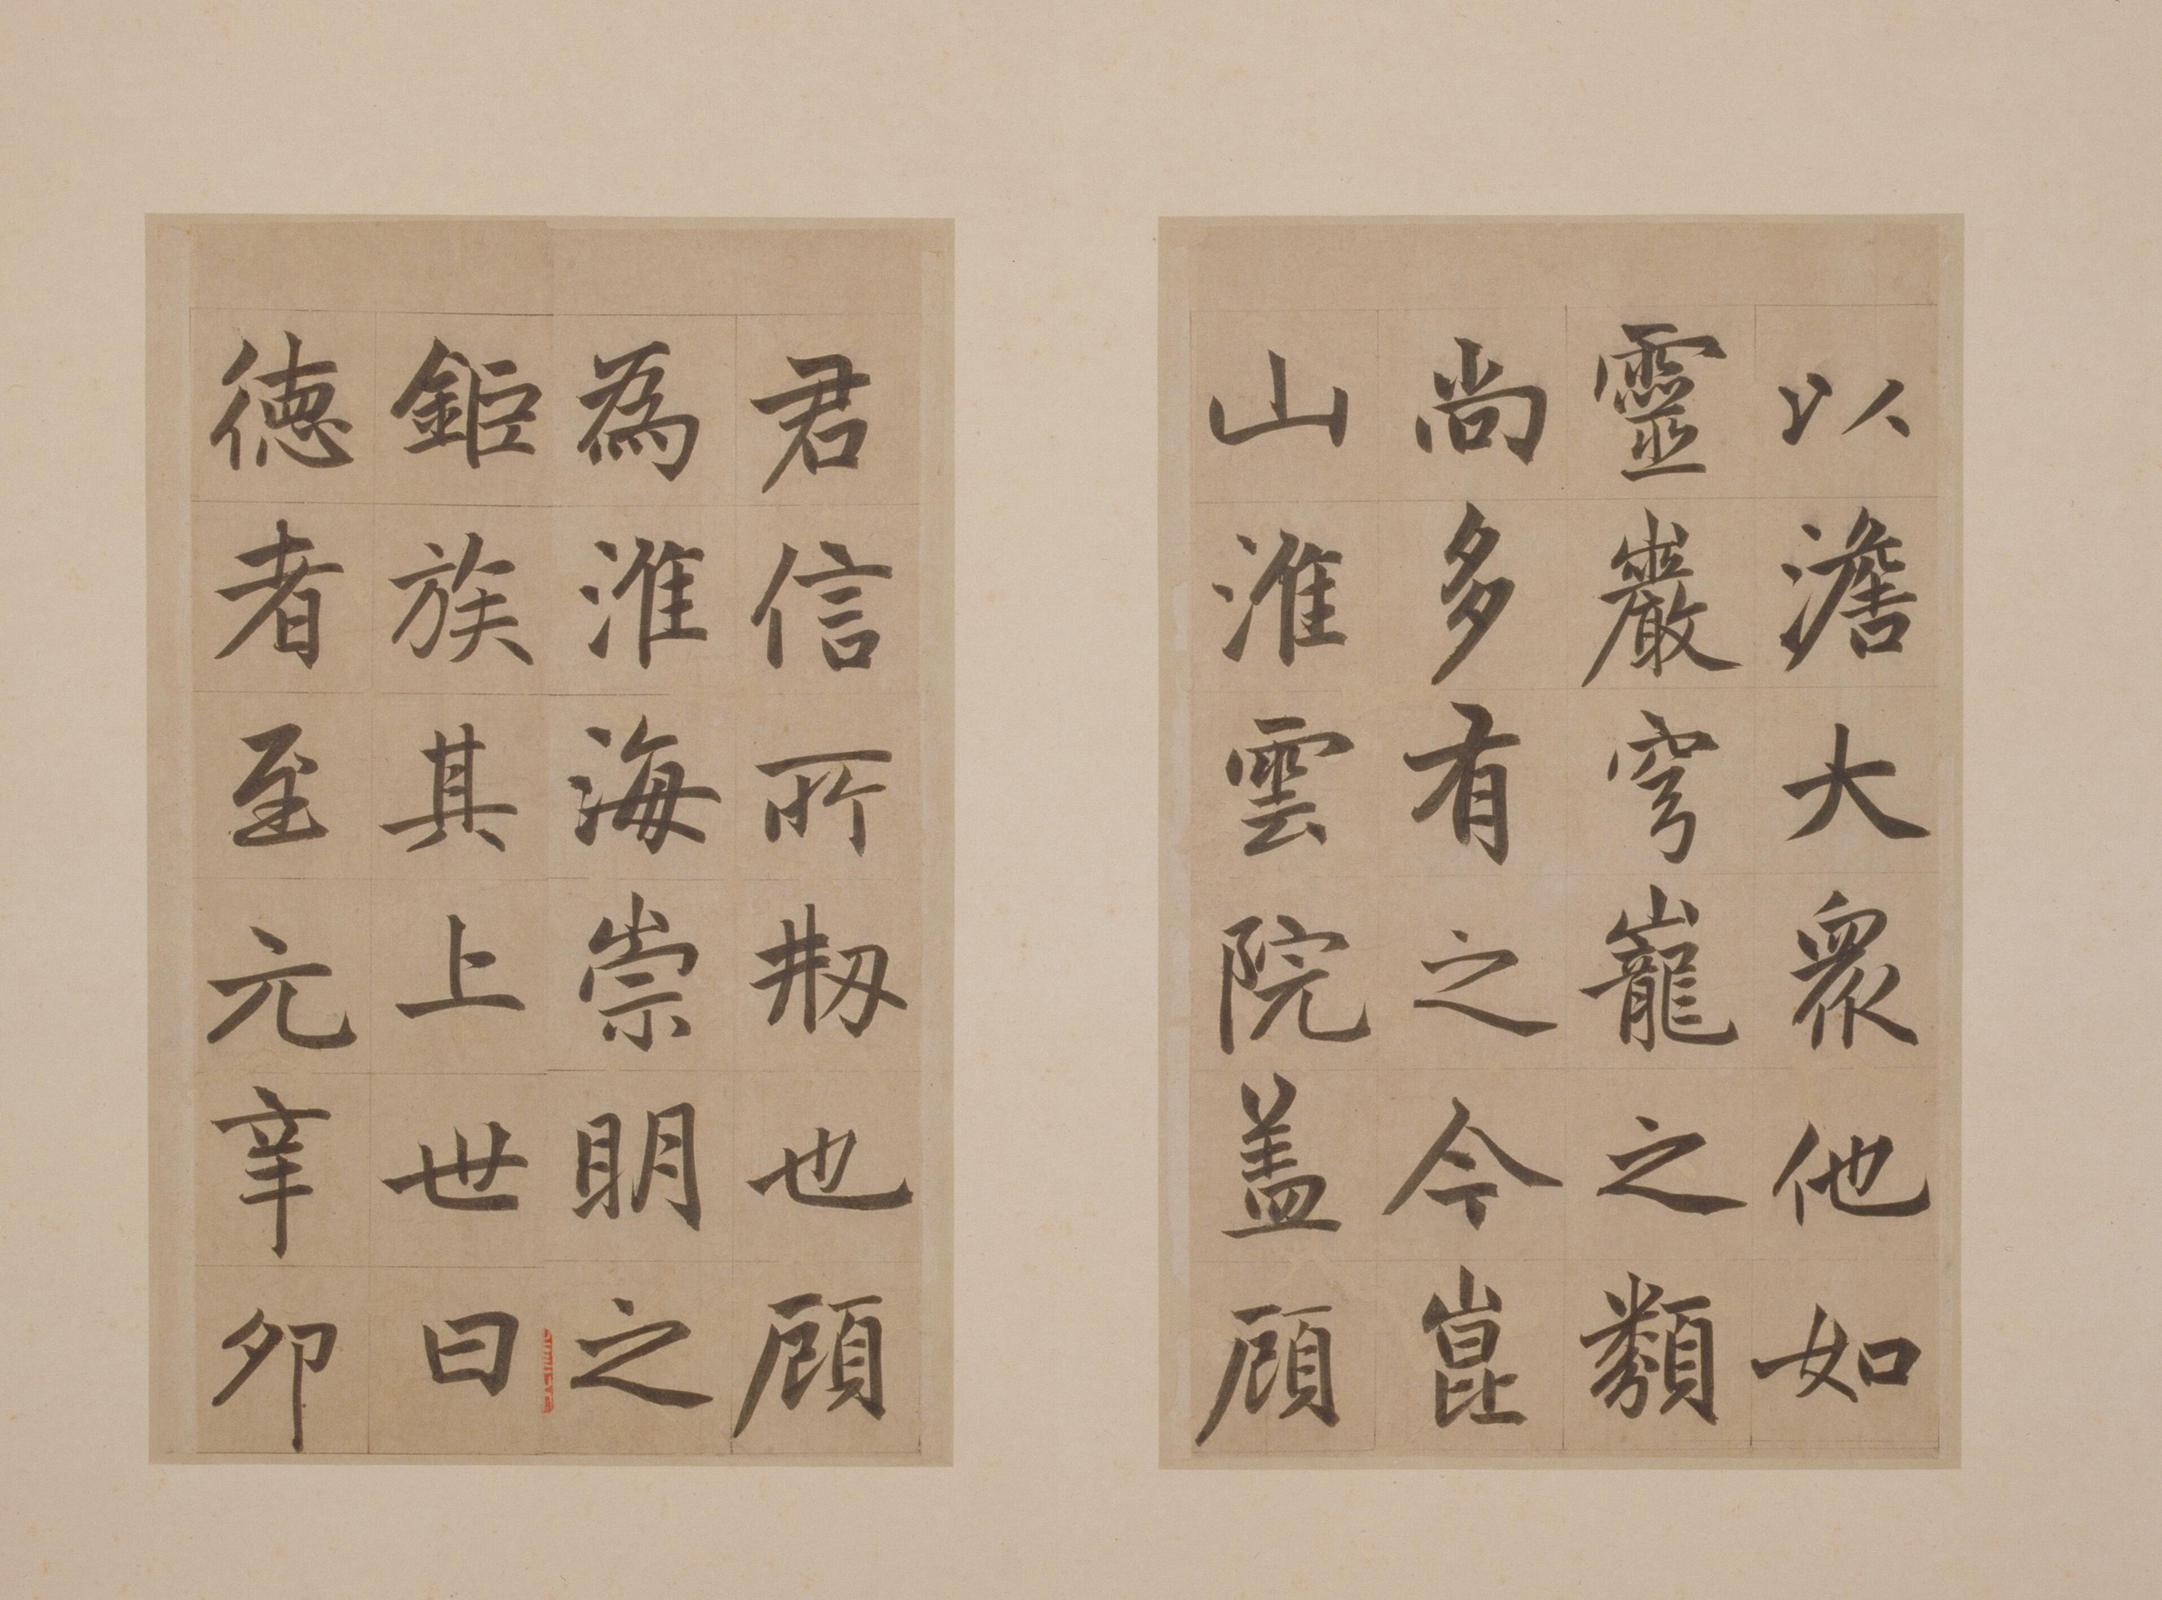 以澹大衆他如
靈巖穹巃之類
尚多有之今崑
山淮雲院盖顧
君信所剏也顧
為淮海崇明之
鉅族其上世曰
德者至元辛卯